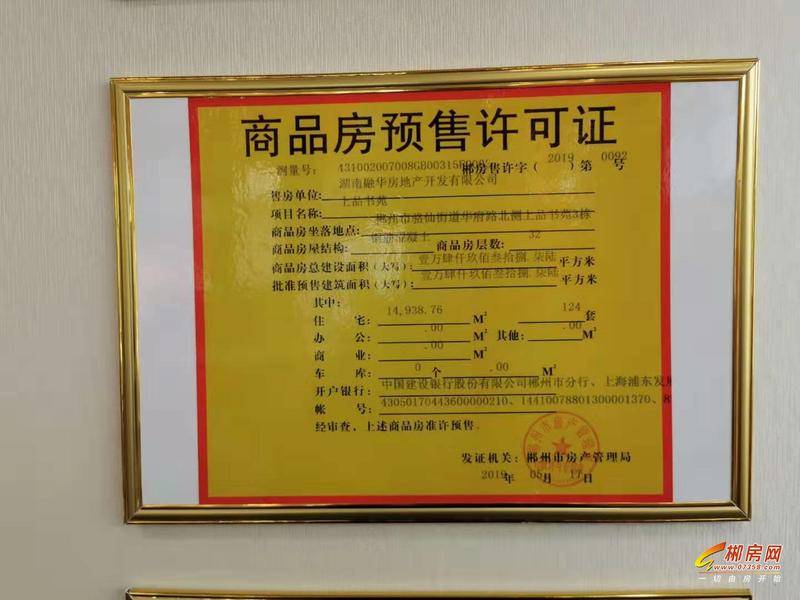 商品房预售许可证
测量号：
郴房售许字（2019）第0092号
售房单位：湖南融华房地产开发有限公司
项目名称：上品书苑
商品房坐落地点：郴州市骆仙街道华府路北侧上品书苑3栋
商品房屋结构：钢筋混凝土 商品房层数：32
商品房总建设面积（大写）：壹万肆仟玖佰叁拾捌.柒陆平方米
批准预售建筑面积（大写）：壹万肆仟玖佰叁拾捌.柒陆平方米
其中：
住 宅：14,938.76 M² 124 套
办 公：.00 M² 其他：.00 M²
商 业：.00 M²
车 库：0 个 .00 M²
开户银行：中国建设银行股份有限公司郴州市分行、上海浦东发展
帐 号：43050170443600000210、14410078801300001370、8
经审查，上述商品房准许预售。
发证机关：郴州市房产管理局
2019年05月17日
郴房网
www.07358.com
一切由房开始